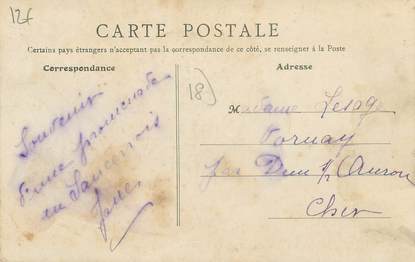 12f
CARTE POSTALE
Certains pays étrangers n'acceptant pas la correspondance de ce côté, se renseigner à la Poste
Correspondance
Adresse
18)
Souvenir
d'une promenade
en Sancerrois
Madame Lesage
Vornay
par Dun s/ Auron
Cher